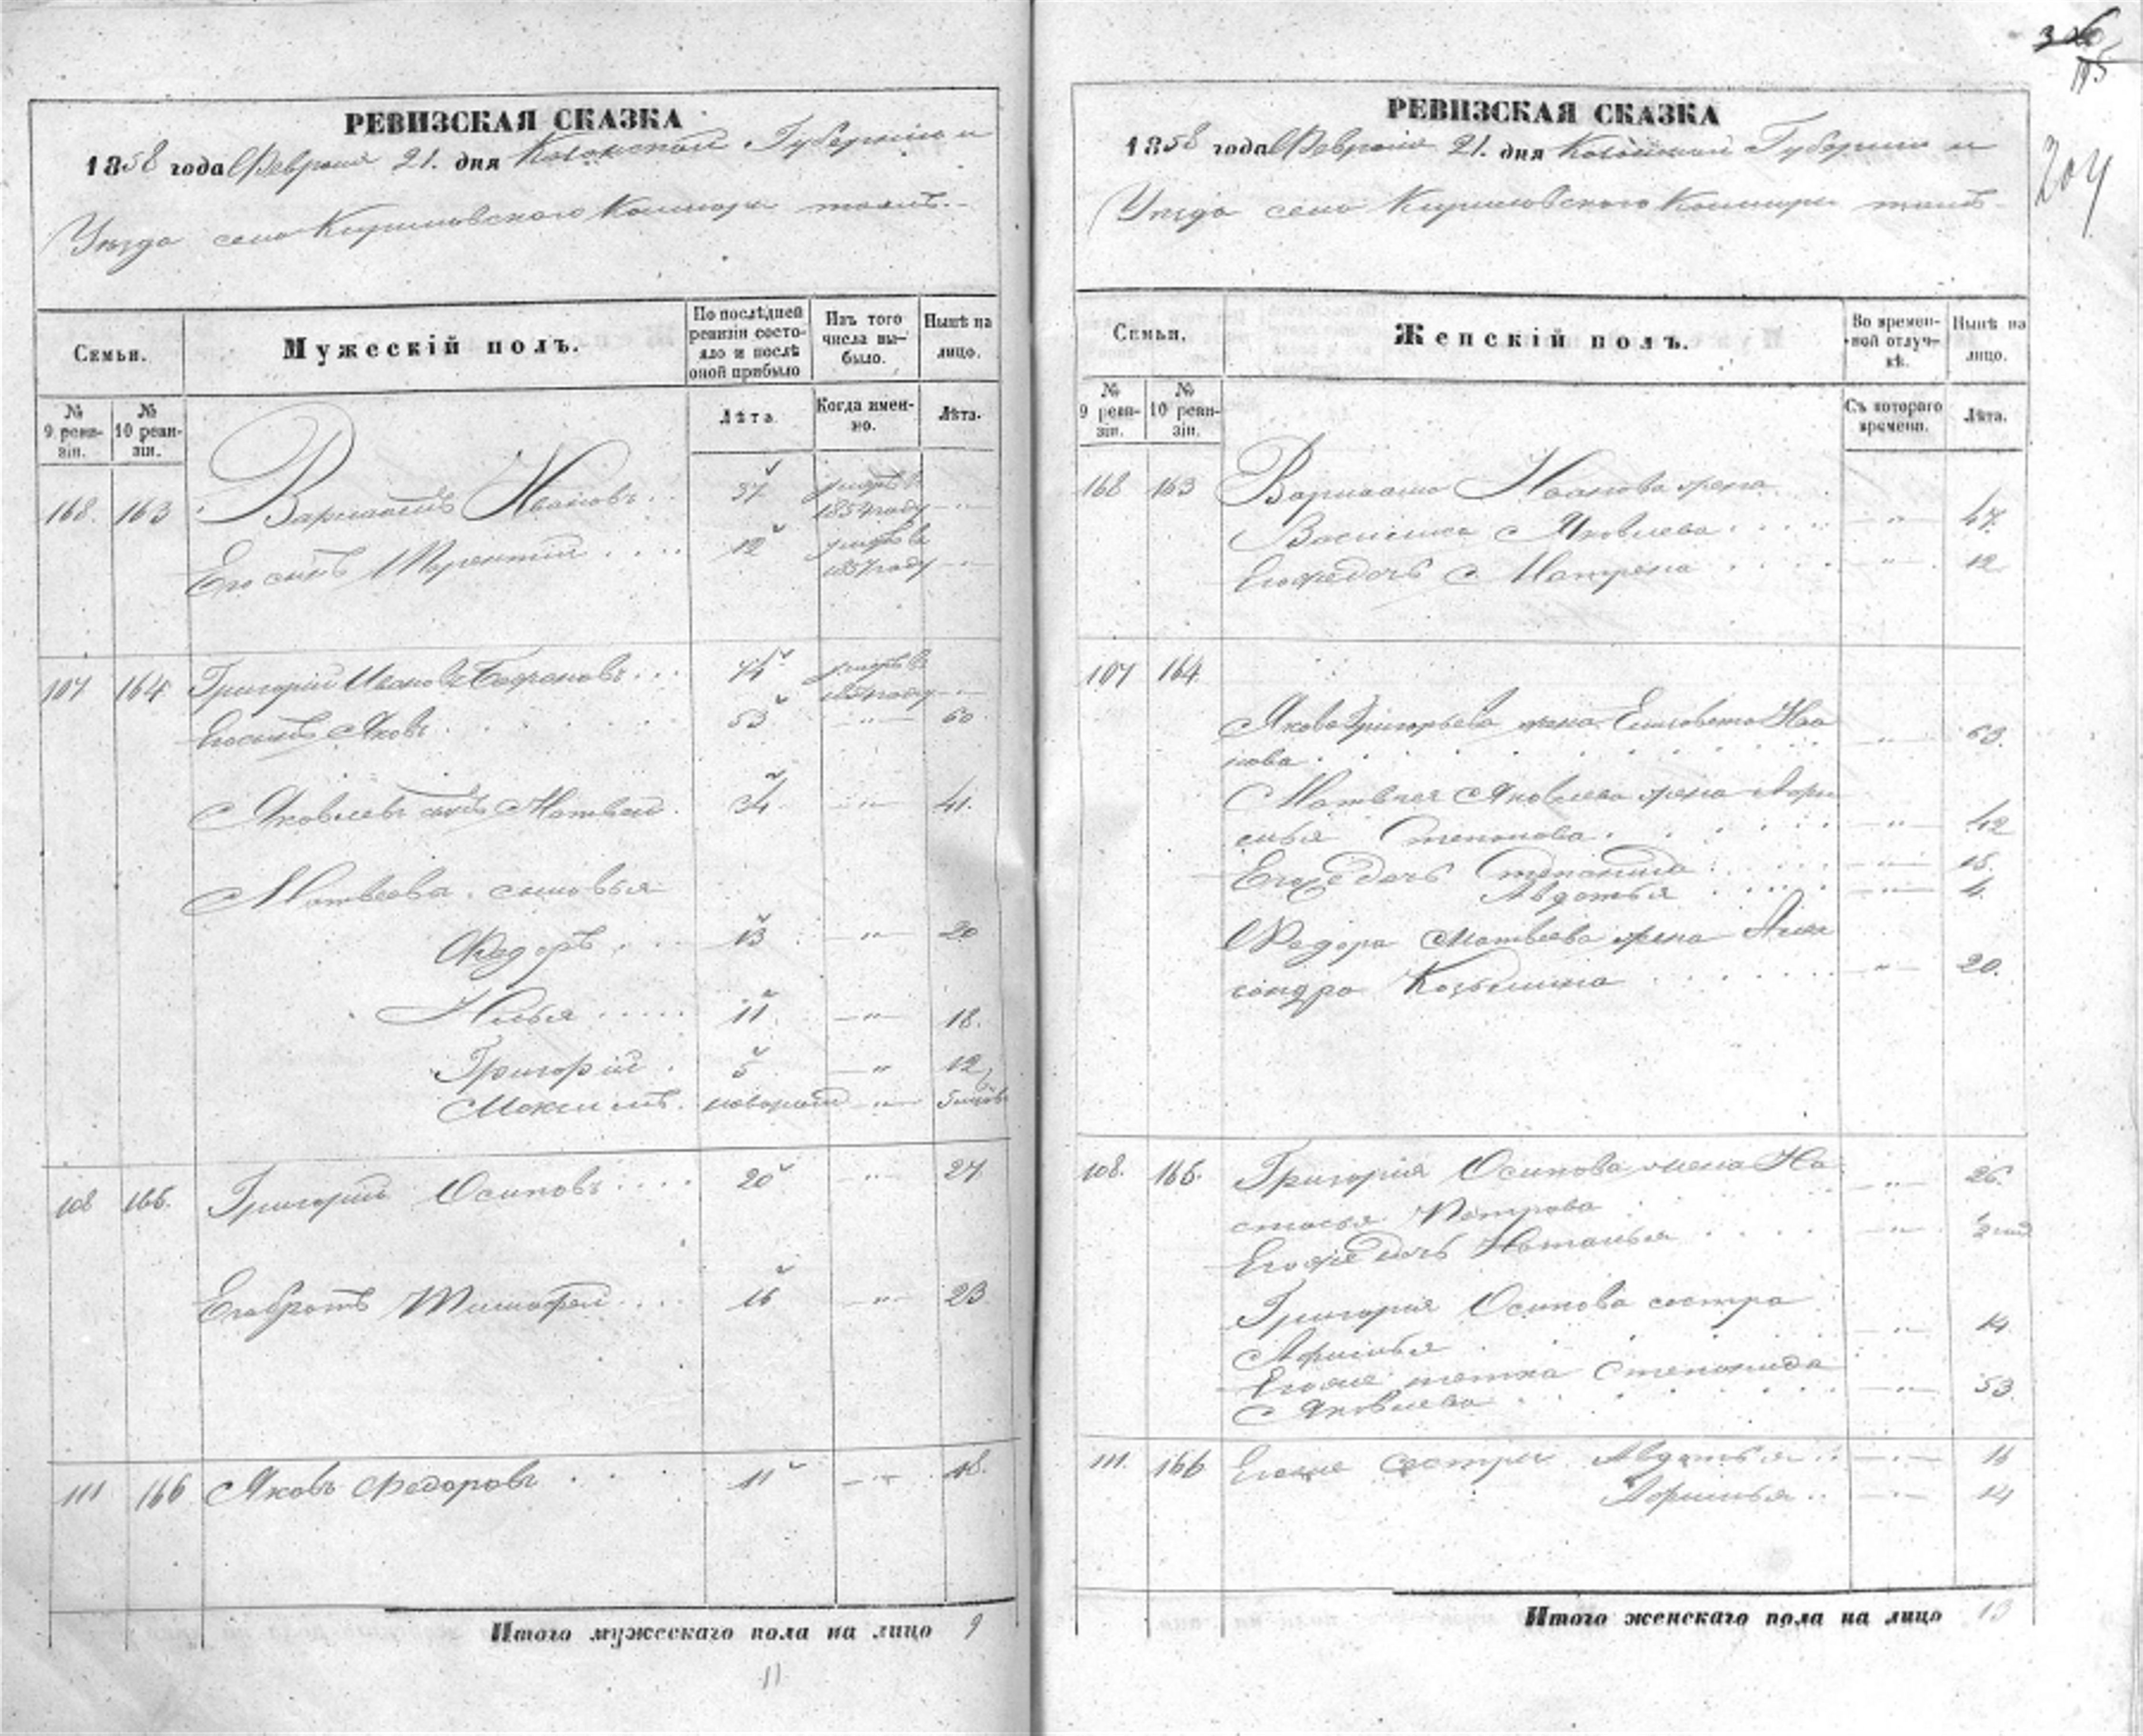 РЕВИЗСКАЯ СКАЗКА
1858 года Февраля 21. дня Казанской Губернии и
Уезда село Кириловского Кошкары тожъ.
Семьи.
Мужескій полъ.
По послѣдней ревизіи состояло и послѣ оной прибыло
Изъ того числа выбыло.
Нынѣ на лицо.
№ 9 ревизіи.
№ 10 ревизіи.
Лѣта.
Когда именно.
Лѣта.
168. 163 Варлаамъ Ивановъ 37 умеръ в 1854 году
Его сынъ 12 умеръ в 1857 году
107 164 Григорій Ивановъ 74 умеръ в 1854 году
Его сынъ Яковъ 53 " 60
Яковлевъ сынъ Матвей 34 " 41.
Матвеева сыновья
Федоръ 13 " 20
Илья 11 " 18.
Григорій 5 " 12
Максимъ новорожд " 5
108 165. Григорій Осиповъ 20 " 27
Его братъ Тимофей 16 " 23
111 166 Яковъ Федоровъ 11 " 18.
Итого мужескаго пола на лицо 9
11
204
РЕВИЗСКАЯ СКАЗКА
1858 года Февраля 21. дня Казанской Губернии и
Уезда село Кириловского Кошкары тожъ
Семьи.
Женскій полъ.
Во временной отлучкѣ.
Нынѣ на лицо.
№ 9 ревизіи.
№ 10 ревизіи.
Съ котораго времени.
Лѣта.
168 163 Варлаама Иванова жена
Василиса Яковлева " 47.
Его же дочь Матрена " 12
107 164
Якова Григорьева жена Елизавета Ива
нова " 63.
Матвея Яковлева жена
Степанова " 42
Его же дочь Степанида " 15.
Авдотья " 4.
Федора Матвеева жена Алек
сандра Козьмина " 20.
108. 165. Григорія Осипова жена На
стасья Петрова " 26.
Его же дочь Наталья "
Григорія Осипова сестра
Афимья " 14
Его же тетка Степанида
Яковлева " 53.
111. 166 Его же сестры Авдотья " 16
" 14
Итого женскаго пола на лицо 13